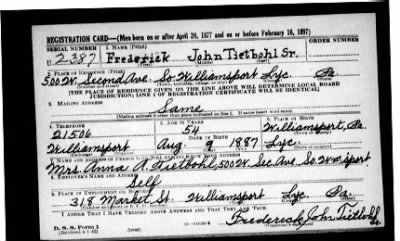 REGISTRATION CARD—(Men born on or after April 28, 1877 and on or before February 16, 1897)
SERIAL NUMBER 1. NAME (Print) ORDER NUMBER
U 2387 Frederick John Tietbohl Sr.
(First) (Middle) (Last)
2. PLACE OF RESIDENCE (Print)
500 W. Second Ave. So. Williamsport Lyc. Pa
[THE PLACE OF RESIDENCE GIVEN ON THE LINE ABOVE WILL DETERMINE LOCAL BOARD
JURISDICTION; LINE 2 OF REGISTRATION CERTIFICATE WILL BE IDENTICAL]
3. MAILING ADDRESS
Same
[Mailing address if other than place indicated on line 2. If same insert word same]
4. TELEPHONE 5. AGE IN YEARS 6. PLACE OF BIRTH
21506 54 Williamsport, Pa.
DATE OF BIRTH
Williamsport Aug 9 1887 Lyc.
7. NAME AND ADDRESS OF PERSON
Mrs. Anna A. Tietbohl, 500 W. Sec Ave. So. Wmsport
8. EMPLOYER'S NAME AND ADDRESS
Self
9. PLACE OF EMPLOYMENT OR BUSINESS
318 Market St. Williamsport Lyc. Pa.
I AFFIRM THAT I HAVE VERIFIED ABOVE ANSWERS AND THAT THEY ARE TRUE.
D. S. S. Form 1 Frederick John Tietbohl Sr.